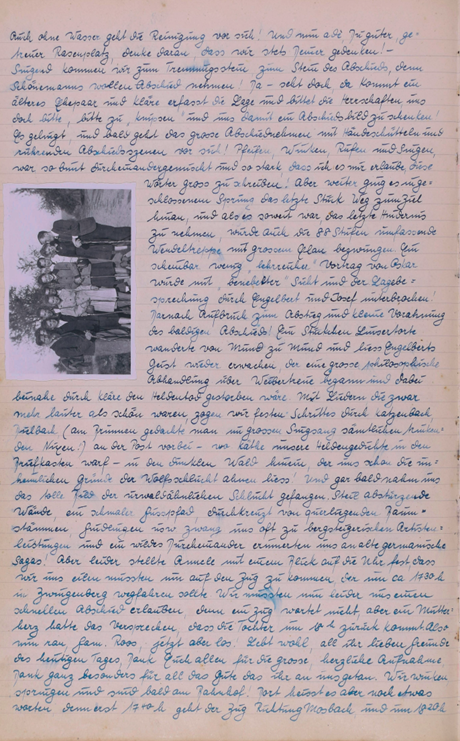 Auch ohne Wasser geht die Reinigung vor sich! Und nun adé Du guter, ge-
treuer Rasenplatz, denke daran, dass wir stets Deiner gedenken! -
Singend kommen wir zum Trennungsstein zum Stein des Abschieds, denn
Schönemanns wollen Abschied nehmen! Ja - seht doch, da kommt ein
älteres Ehepaar und Kläre erfasst die Lage und bittet die Herrschaften, uns
doch bitte, bitte zu knipsen! und uns damit ein Abschiedsbild zu schenken!
Es gelingt und bald geht das grosse Abschiednehmen mit Händeschütteln und
rührenden Abschiedsszenen vor sich! Pfeifen, Winken, Rufen und Singen,
war so bunt durcheinandergemischt und so stark, dass ich es mir erlaube, diese
Wörter gross zu schreiben! Aber weiter ging es in ge-
schlossenem Sprung das letzte Stück Weg zum Ziel
hinan, und als es soweit war das letzte Hindernis
zu nehmen, wurde auch die 88 Stufen umfassende
Wendeltreppe mit grossem Elan bezwungen. Ein
scheinbar wenig "lehrreicher" Vortrag von Oskar
wurde mit "benebelter" Sicht und der Lagebe-
sprechung durch Engelbert und Josef unterbrochen!
Darnach Aufbruch zum Abstieg und kleine Vorahnung
des baldigen Abschieds! Ein Stückchen Linsertorte
wanderte von Mund zu Mund und liess Engelberts
Geist wieder erwachen, der eine grosse philosophische
Abhandlung über Weibertreue begann und dabei
beinahe durch Kläre den Heldentod gestorben wäre. Mit Liedern die zwar
mehr lauter als schön waren zogen wir festen Schrittes durch Katzenbach
Dielbach (am Brunnen gedachte man im grossen Singsang sämtlichen
den) an der Post vorbei - wo Käthe unsere Heldengedichte in den
Briefkasten warf - in den dunklen Wald hinein, der uns schon die un-
heimlichen Gründe der Wolfschlucht ahnen liess! Und gar bald nahm uns
das tolle Bild der urwaldähnlichen Schlucht gefangen. Steil abstürzende
Wände ein schmaler Fusspfad, durchkreuzt von querliegenden Baum-
stämmen, Windungen usw zwang uns oft zu bergsteigerischen Artisten-
leistungen und ein wildes Durcheinander erinnerten uns an alte germanische
Sagas! Aber leider stellte Annele mit einem Blick auf die Uhr fest, dass
wir uns eilen müssten um auf den Zug zu kommen, der um ca 17 30 h
in Zwingenberg wegfahren sollte. Wir mussten nun leider uns einen
schnellen Abschied erlauben, denn ein Zug wartet nicht, aber ein Mutter-
herz hatte das Versprechen, dass die Tochter um 18 h zurück kommt. Also
nun ran, Fam. Roos, jetzt aber los! Lebt wohl, all ihr lieben Freunde
des heutigen Tages, Dank Euch allen für die grosse, herzliche Aufnahme
Dank ganz besonders für all das Gute das ihr an uns getan. Wir winken
springen und sind bald am Bahnhof! Dort heisst es aber noch etwas
warten, denn erst 17 40 h geht der Zug Richtung Mosbach, und um 18 20 h